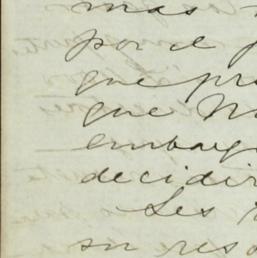 mas
por el
que pr
que No
embarg
decidir
Les
su res